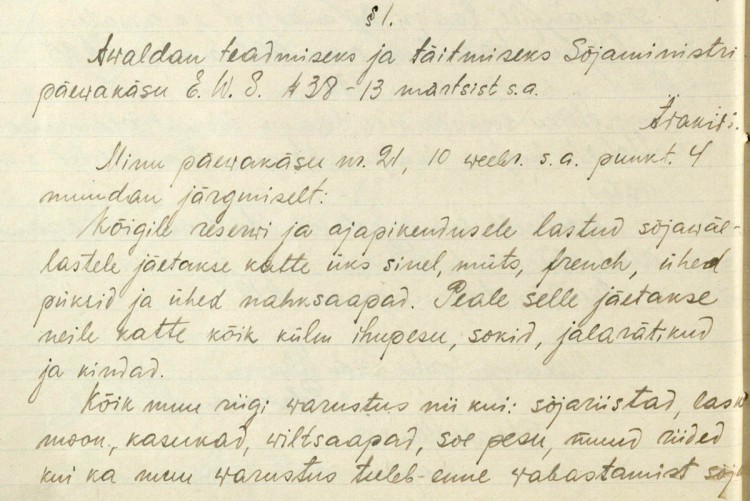 § 1.
Awaldan teadmiseks ja täitmiseks Sõjaministri
päewakäsu E. W. S. № 38 - 13 martsist s.a.
Ärakiri.
Minu päewakäsu nr. 21, 10 weebr. s.a. punkt. 4
muudan järgmiselt:
Kõigile reserwi ja ajapikendusele lastud sõjawäe-
lastele jäetakse katte üks sinel, müts, french, ühed
püksid ja ühed nahksaapad. Peale selle jäetakse
neile katte kõik külm ihupesu, sokid, jalarätikud
ja kindad.
Kõik muu riigi warustus nii kui: sõjariistad, laske
moon, kasukad, wiltsaapad, soe pesu, muud riided
kui ka muu warustus tuleb enne wabastamist